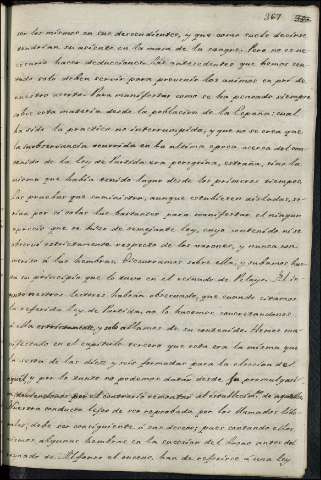 367
son los mismos en sus descendientes, y que como suele decirse
tendrian su asiento en la masa de la sangre. Pero no es ne-
cesario hacer deducciones. Los antecedentes que hemos sen-
tado solo deben servir para prevenir los animos en pró de
nuestro aserto. Para manifestar como se ha pensado siempre
sobre esta materia desde la poblacion de la España; cual
ha sido la practica no interrumpida, y que no se crea que
la inobservancia ocurrida en la ultima epoca acerca del con-
tenido de la ley de Partida era peregrina, estraña, sino la
misma que habia tenido lugar desde los primeros tiempos,
las pruebas que suministra, aunque estubieren aisladas, se-
rian por sí solas harto bastantes para manifestar el ningun
aprecio que se hizo de semejante ley, cuyo contenido ni se
observó estrictamente respecto de los varones, y nunca con-
tra las hembras. Discurramos sobre ella, y subamos has-
ta su principio que lo tuvo en el reinado de Pelayo.
nuestros lectores habrán observado, que cuando citamos
la referida ley de Partida, no lo hacemos concretandonos
á ella estrictamente, y solo hablamos de su contenido. Hemos ma-
nifestado en el capitulo tercero que esta era la misma que
la sesta de las diez y seis formadas para la eleccion del
y por lo tanto no podemos datar desde su promulgacion
Nuestra conducta lejos de ser reprobada por los llamados libe-
rales, debe ser consiguiente á sus deseos, pues contando ellos
algunas hembras en la sucesion del trono antes del
reinado de Alfonso el onceno, han de referirse á una ley